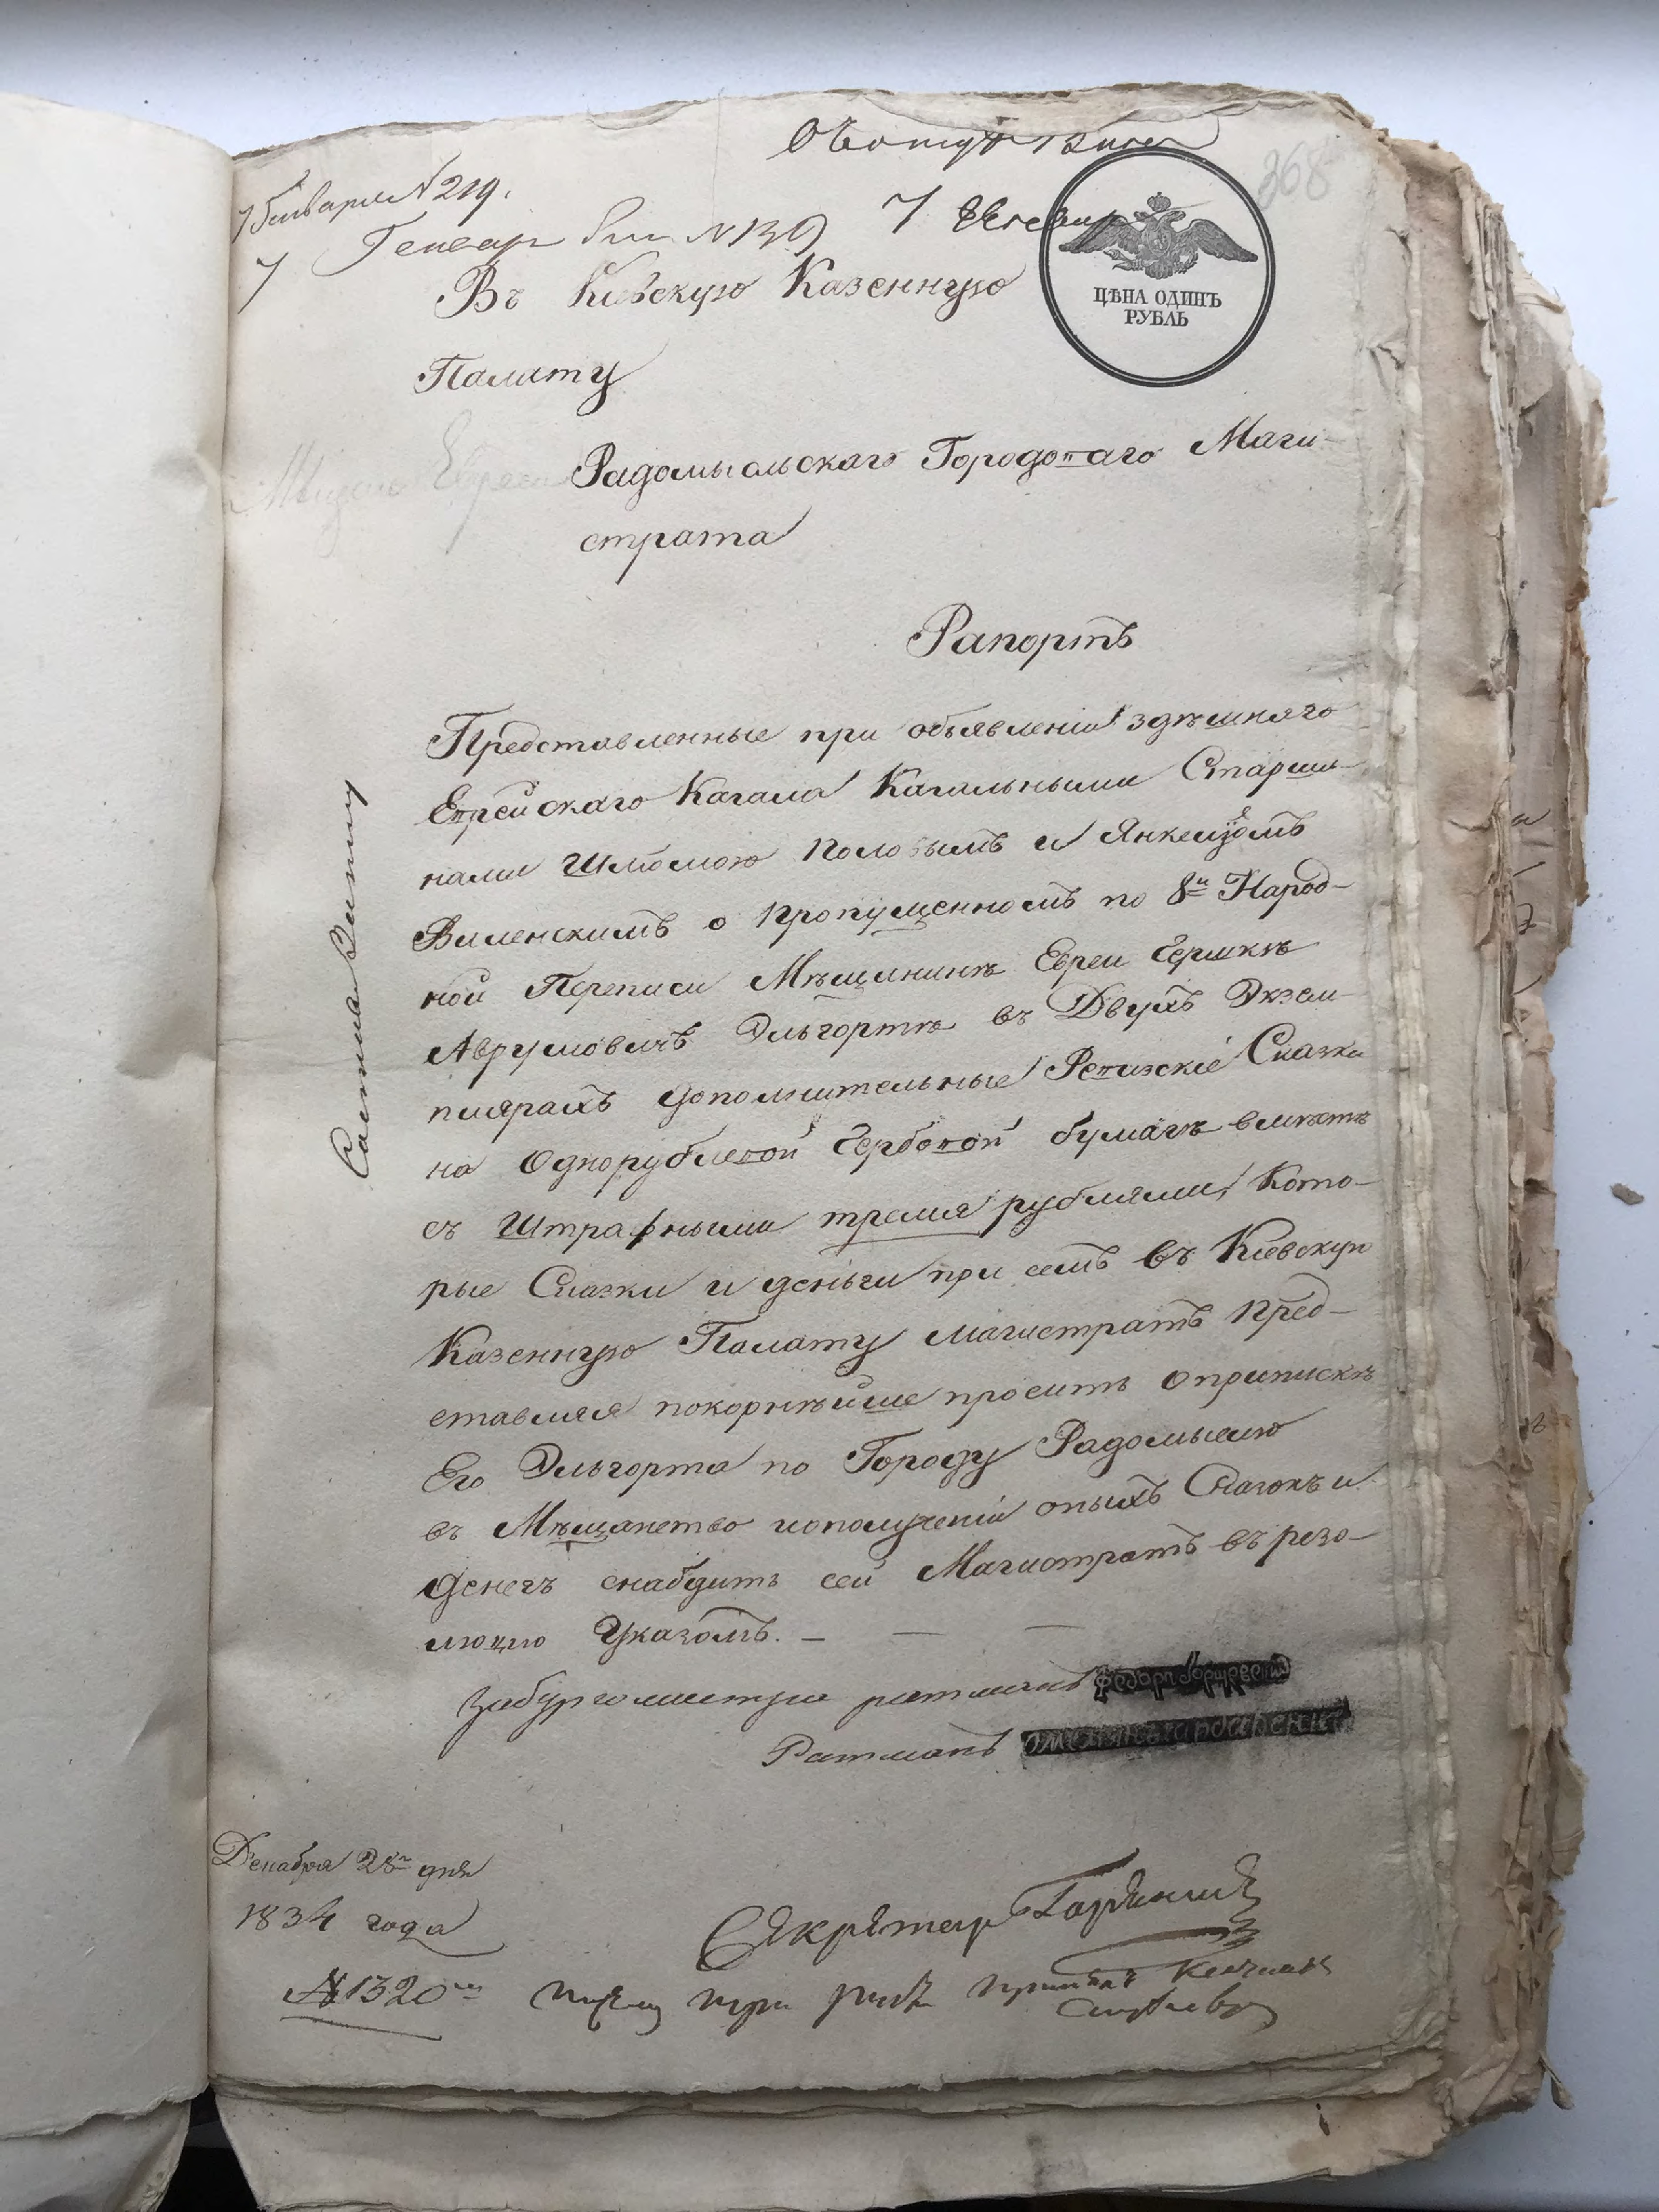 7 Генваря № 219.
7 Генвар № 139
368
ЦѢНА ОДИНЪ
РУБЛЬ
Въ Киевскую Казенную
Палату
Радомысльскаго Городоваго Маги-
страта
Рапортъ
Представленные при объявленіи здѣшняго
Еврейскаго Кагала Кагальными Старши-
нами Шлiомою Половымъ и Янкелемъ
Виленскимъ о пропущенномъ по 8й Народ-
ной Переписи Мѣщанинѣ Евреи Гершкѣ
Аврумовичѣ Эльгортѣ въ Двухъ Экзем-
плярахъ дополнительные Ревизскіе Сказки
на Однорублевой Гербовой бумагѣ вмѣстѣ
съ Штрафными тремя рублями, Кото-
рые Сказки и деньги при семъ въ Киевскую
Казенную Палату Магистратъ Пред-
ставляя покорнѣйше проситъ о припискѣ
Его Эльгорта по Городу Радомыслю
въ Мѣщанство и о полученіи оныхъ Сказокъ и
Денегъ снабдить сей Магистратъ въ резо-
люцію Указомъ. — — —
За бургомистра ратманъ
Ратманъ
Декабря 28го дня
1834 года
Секретарь
№ 1320
три